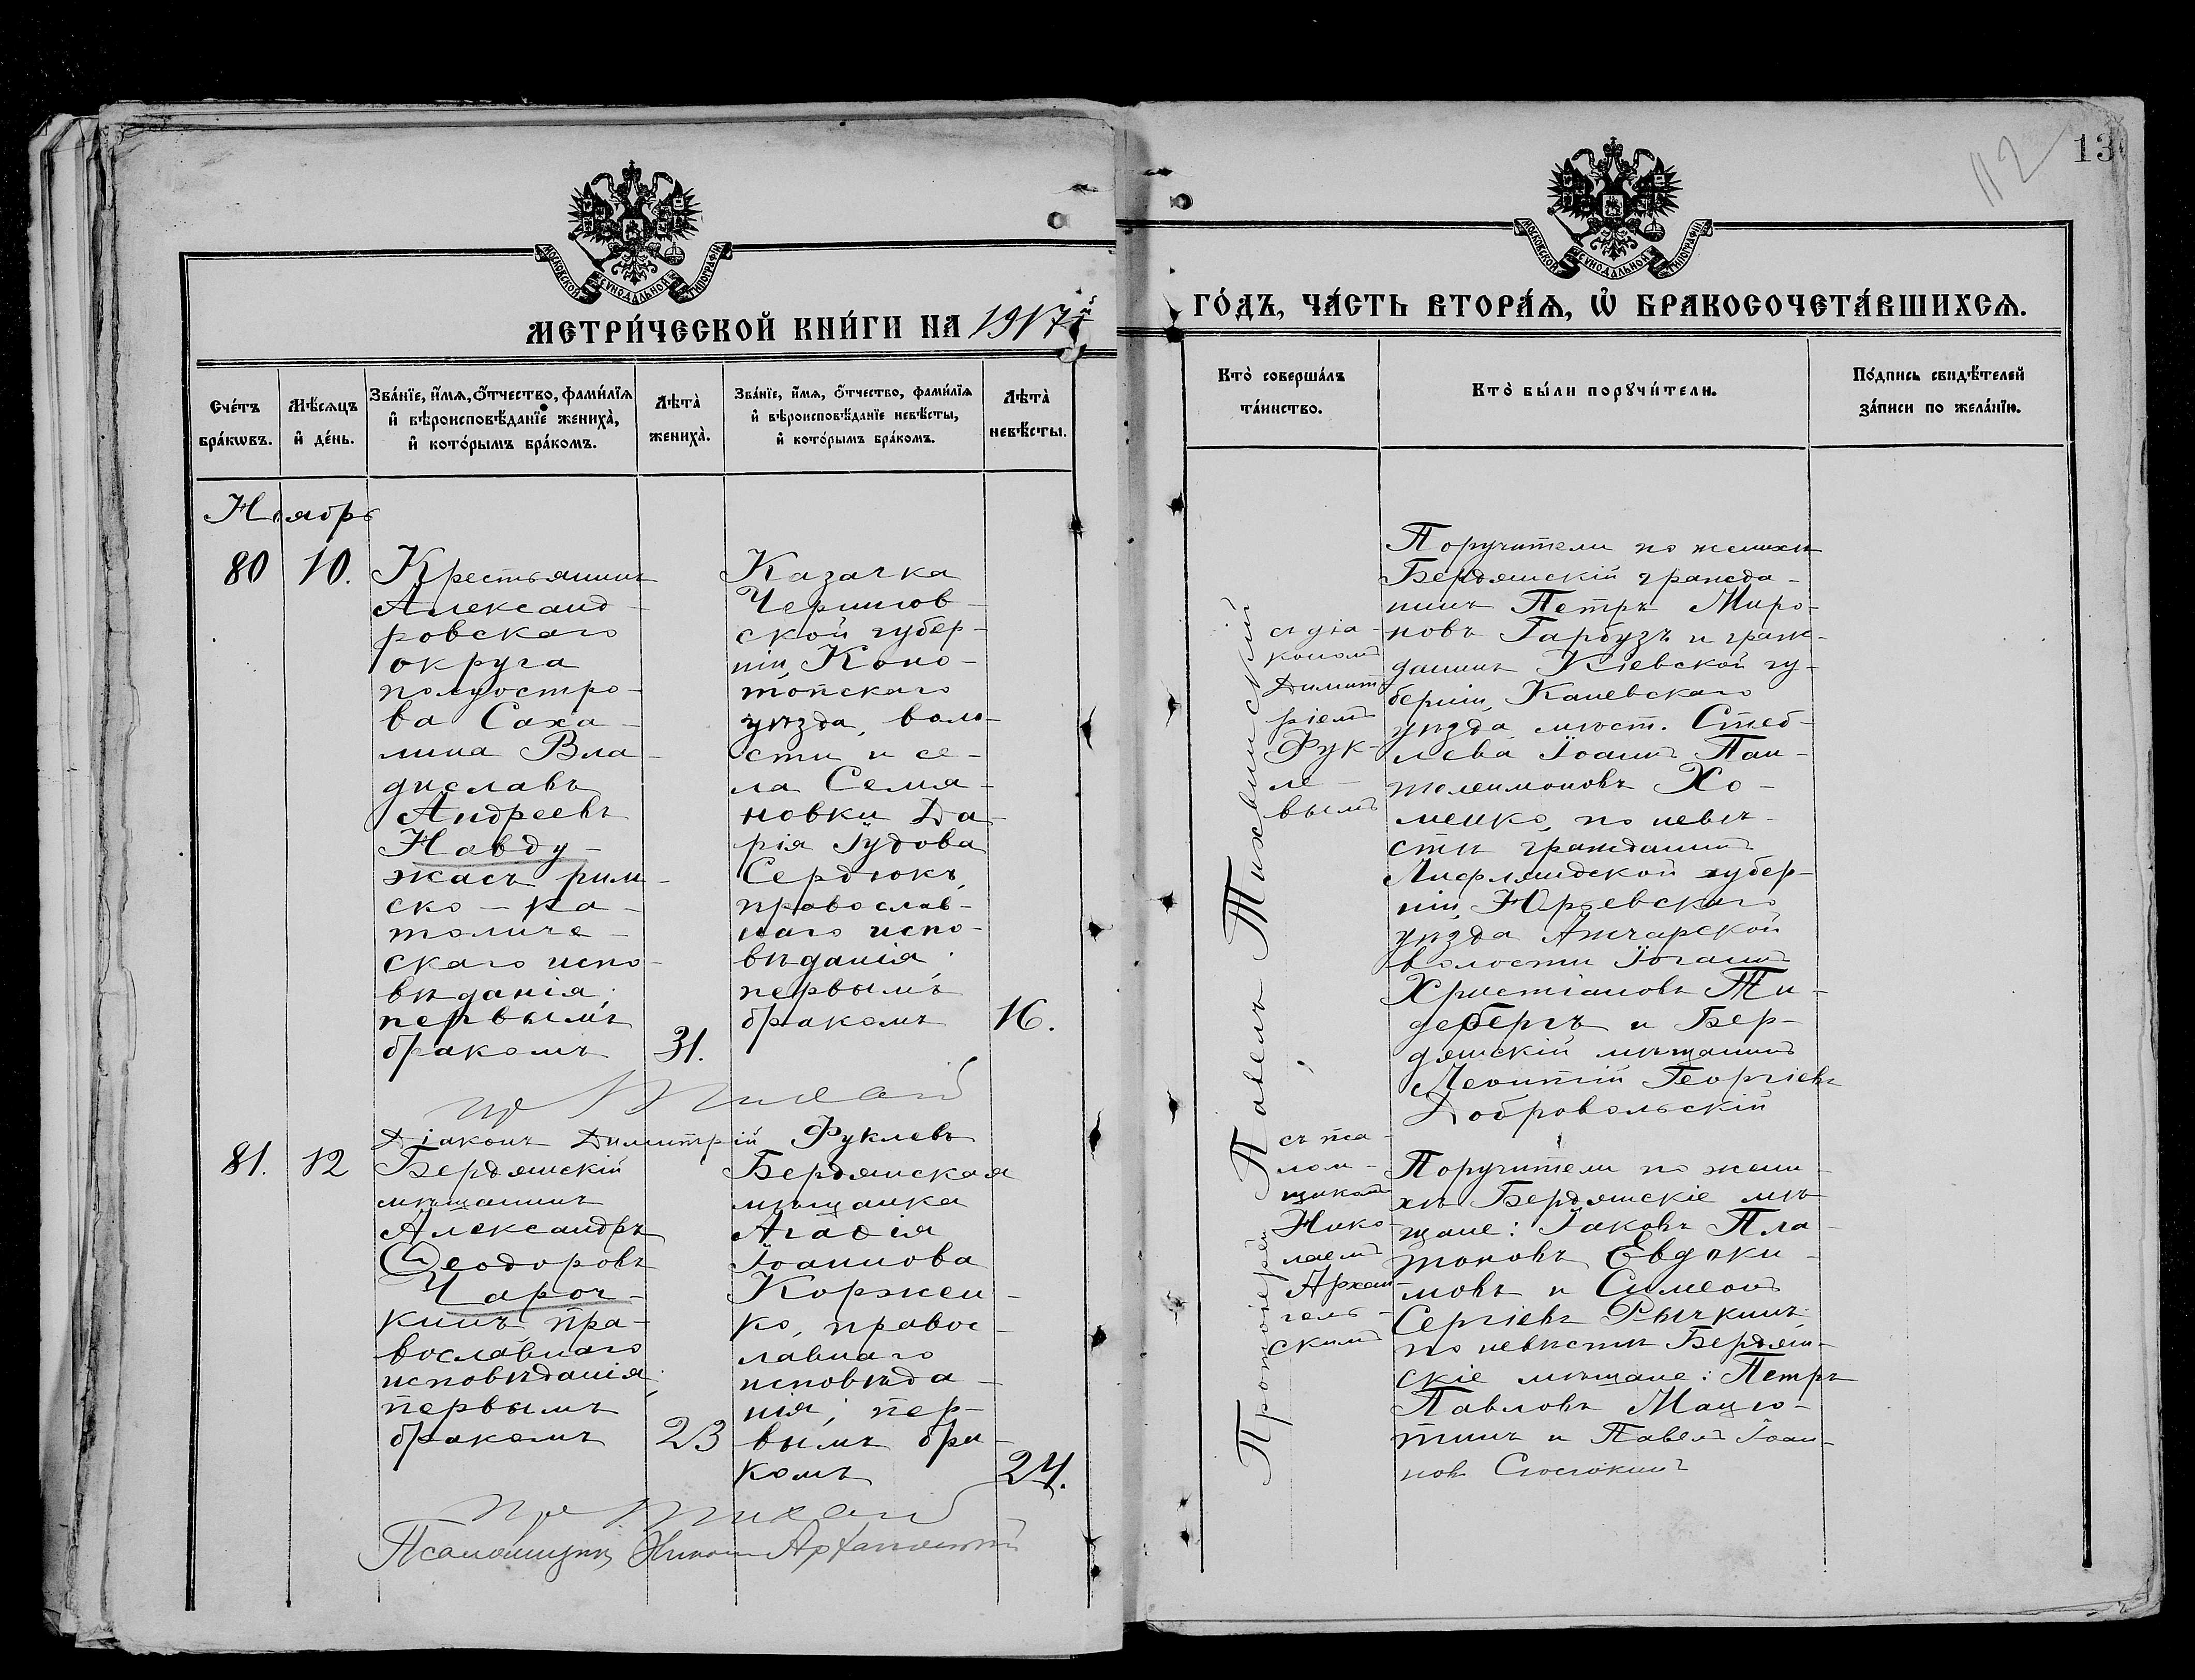 112
13
МОСКОВСКОЙ СѴНОДАЛЬНОЙ ТИПОГРАФІИ
МОСКОВСКОЙ СѴНОДАЛЬНОЙ ТИПОГРАФІИ
МЕТРИ́ЧЕСКОЙ КНИ́ГИ НА 1917й
ГО́ДЪ, ЧА́СТЬ ВТОРА́Ѧ, Ѡ҆ БРАКОСОЧЕТА́ВШИХСѦ.
Сче́тъ бра́кѡвъ.
Мѣ́сяцъ и҆ де́нь.
Зва́нїе, и҆́мѧ, ѻ҆́тчество, фами́лїѧ
и҆ вѣроисповѣ́данїе жениха̀,
и҆ кото́рымъ бра́комъ.
Лѣта̀ жениха̀.
Зва́нїе, и҆́мѧ, ѻ҆́тчество, фами́лїѧ
и҆ вѣроисповѣ́данїе невѣ́сты,
и҆ кото́рымъ бра́комъ.
Лѣта̀ невѣ́сты.
Кто̀ соверша́лъ та́инство.
Кто̀ бы́ли порꙋчи́тели.
По́дпись свидѣ́телей за́писи по жела́нїю.
Ноябрь
80
10.
Крестьянинъ
Александ-
ровскаго
округа
полуостро-
ва Саха-
лина Вла-
диславъ
Андреевъ
Навду-
жасъ рим-
ско-ка-
толиче-
скаго испо-
вѣданія;
первымъ
бракомъ
31.
Казачка
Чернигов-
ской губер-
ніи, Коно-
топскаго
уѣзда, воло-
сти и се-
ла Семя-
новки Да-
рія Іудова
Сердюкъ,
православ-
наго испо-
вѣданія;
первымъ
бракомъ
16.
Протоіерей Павелъ Тихвинскій
съ діа-
кономъ
Димит-
ріемъ
Фук-
ле-
вымъ
Поручители по женихѣ
Бердянскій гражда-
нинъ Петръ Миро-
новъ Гарбузъ и граж-
данинъ Кіевской гу-
берніи, Каневскаго
уѣзда мѣст. Стеб-
лева Іоаннъ Пан-
телеимоновъ Хо-
менко, по невѣ-
стѣ гражданинъ
Лифляндской губер-
ніи, Юрьевскаго
уѣзда
волости Іоганнъ
Христіановъ Ти-
дебергъ и Бер-
дянскій мѣщанинъ
Леонтій Георгіевъ
Добровольскій
Діаконъ Димитрій Фуклевъ
81.
12
Бердянскій
мѣщанинъ
Александръ
Ѳеодоровъ
Чароч-
кинъ, пра-
вославнаго
исповѣданія;
первымъ
бракомъ
23
Бердянская
мѣщанка
Агаѳія
Іоаннова
Коржен-
ко, правос-
лавнаго
исповѣда-
нія; пер-
вымъ бра-
комъ
24.
съ пса-
лом-
щикомъ
Нико-
лаемъ
Архан-
гель-
скимъ
Поручители по жени-
хѣ Бердянскіе мѣ-
щане: Іаковъ Пла-
тоновъ Евдоки-
мовъ и Симеонъ
Сергіевъ Рычкинъ;
по невѣстѣ Бердян-
скіе мѣщане: Петръ
Павловъ Мацю-
тинъ и Павелъ Іоан-
новъ Сюсюкинъ
Псаломщикъ Николай Архангельскій